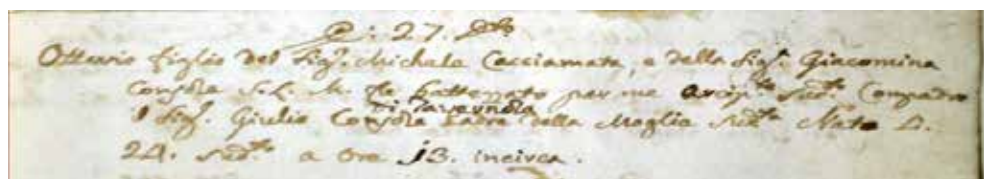 A: 27. detto
Ottavio figlio del Sig.r Michele Cacciamata, e della Sig.ra Giacomina
Consola S. L. M. fu battezzato per me Arcip.te Sud.to Compadre
di Tavernola
il Sig.r Giulio Consola Padre della Moglie Sud.ta Nato A.
24. Sud.to a ore 13. incirca.